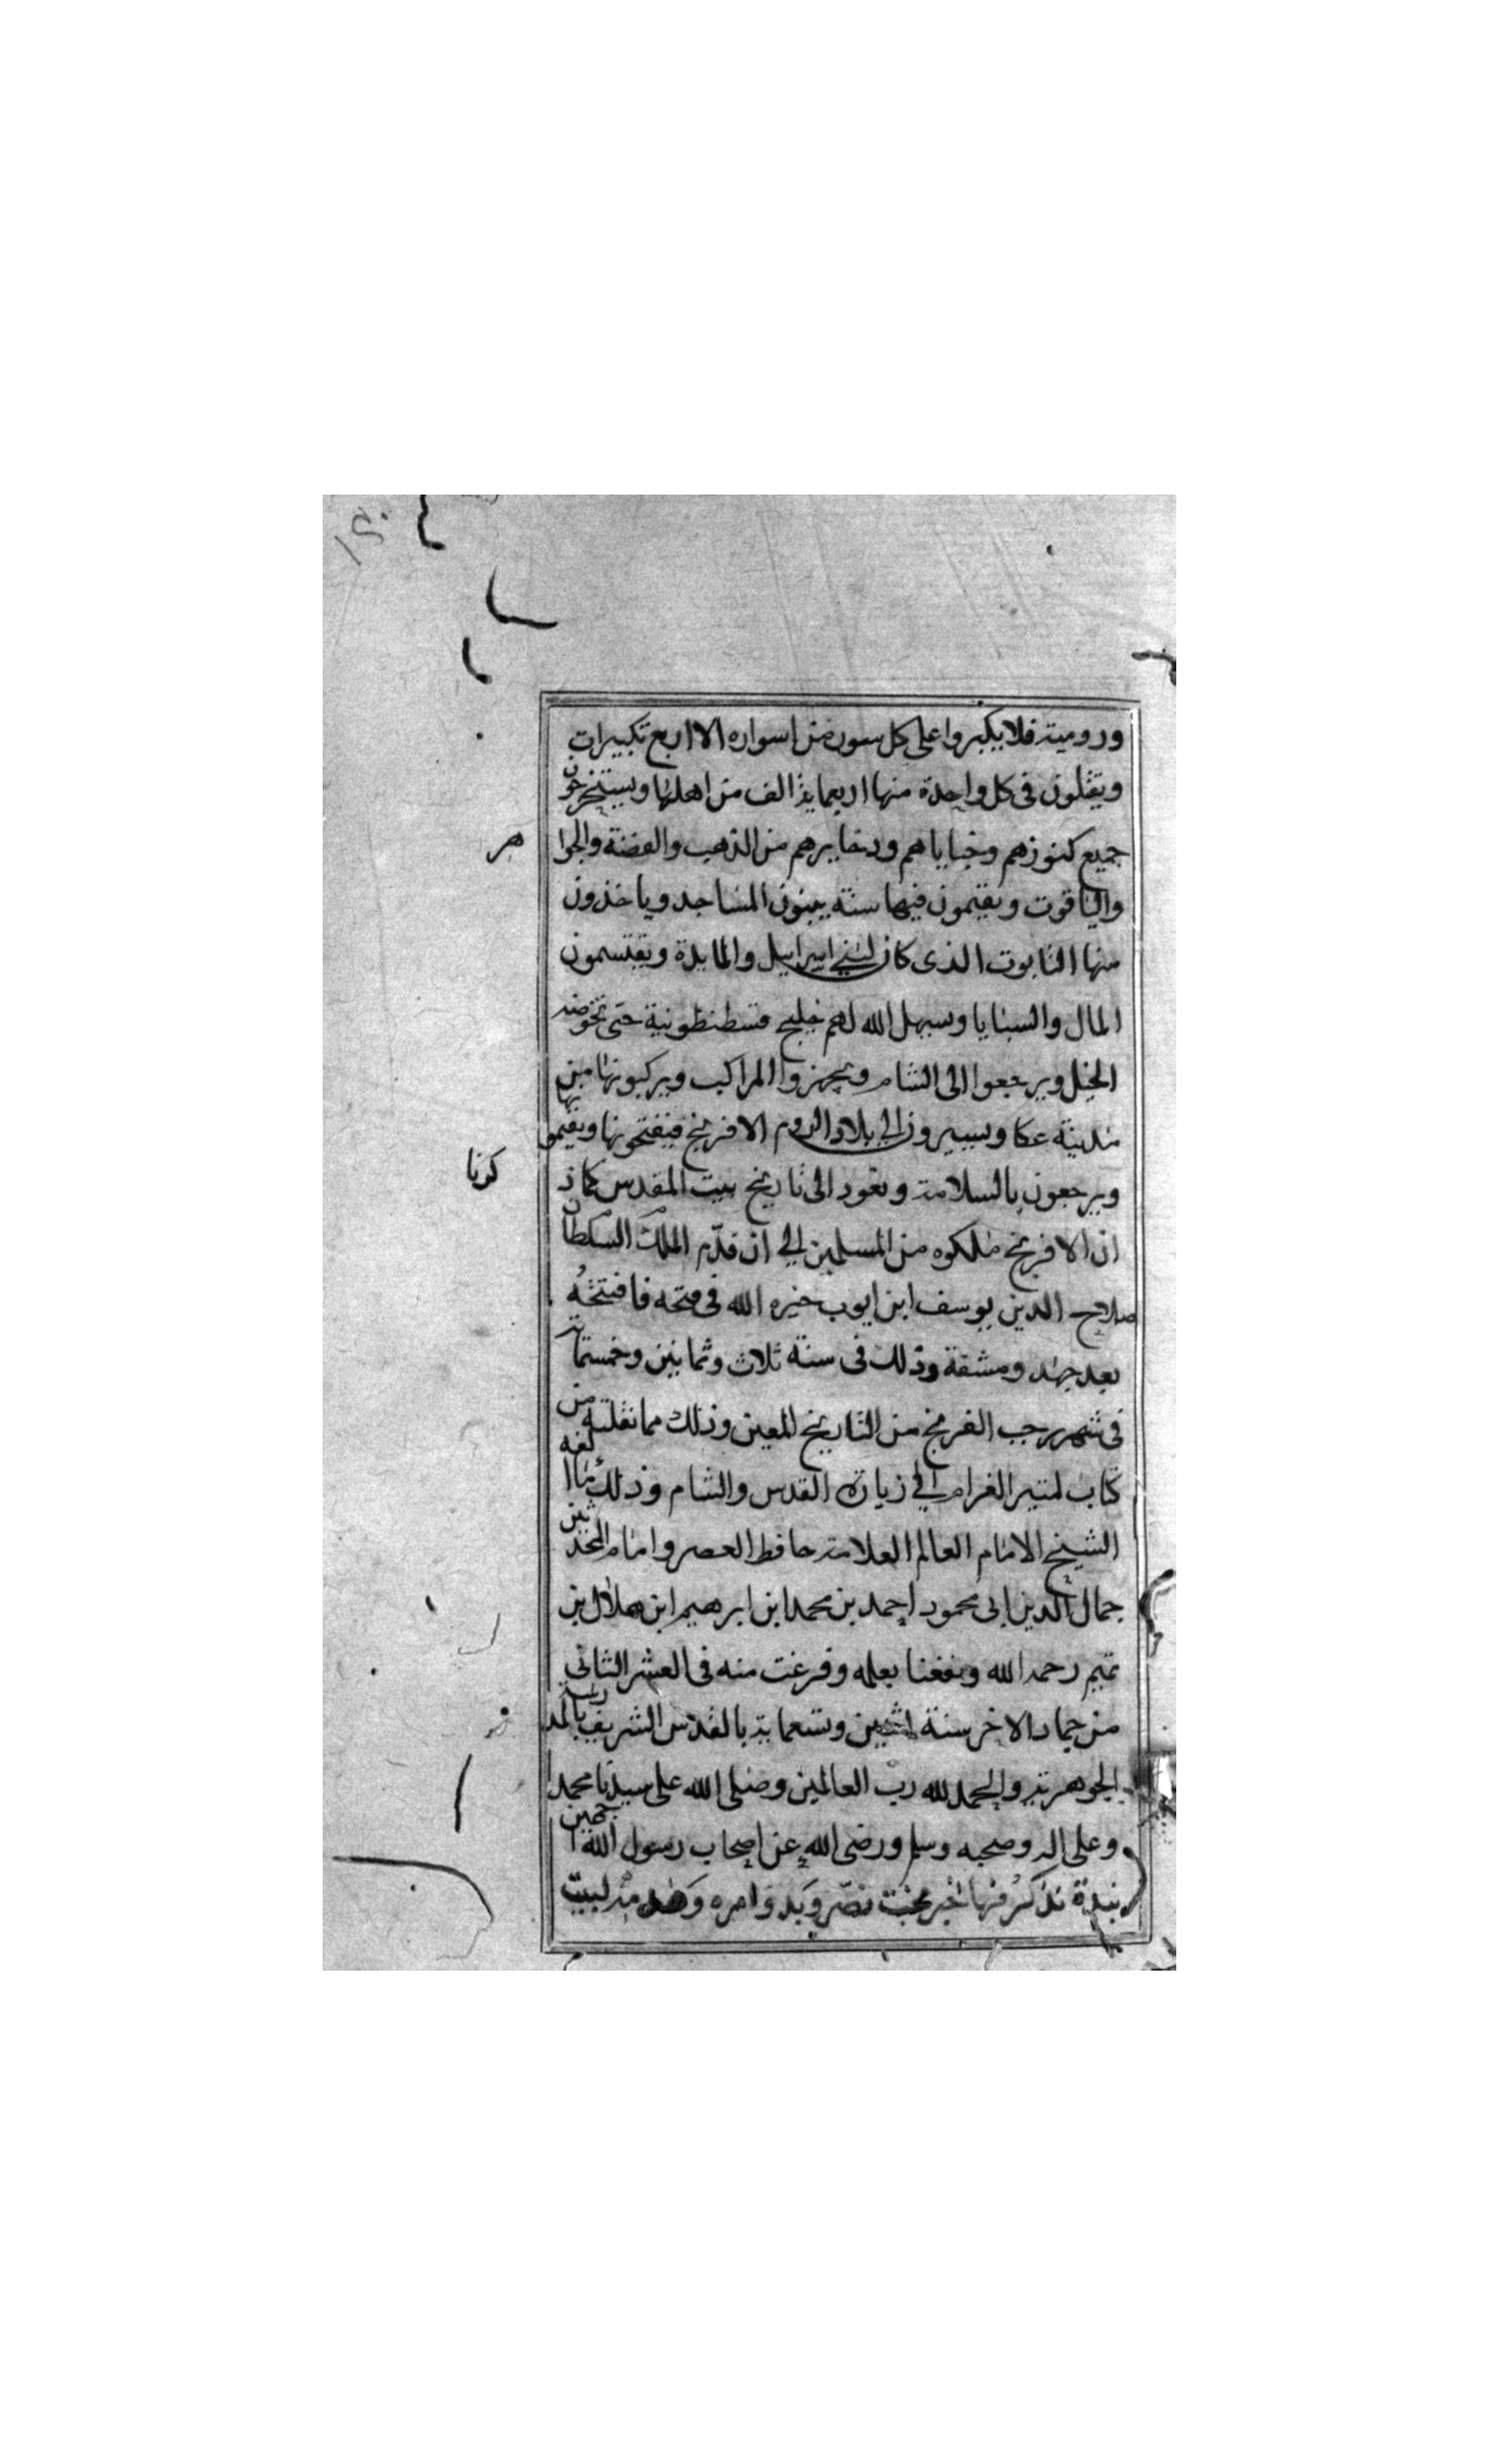 ورومية فلا يكبروا على كل سور من اسواره الا اربع تكبيرات
ويقلون فى كل واحدة منها اربعماية الف من اهلها ويستخرجون
جميع كنوزهم وخباياهم ودخايرهم من الذهب والفضة والجوا هر
والياقوت ويقيمون فيها سنة يبنون المساجد وياخذون
منها التابوت الذى كان لبني اسراييل والمايدة ويقتسمون
المال والسبايا وسهل الله لهم خليج قسطنطونية حتى تخوضه
الخيل ويرجعوا الى الشام ويجهزوا المراكب ويركبونها من
مدينة عكا ويسيرون الي بلاد الروم الافرنج فيفتحونها ويقيمو نها
ويرجعون بالسلامة ونعود الى تاريخ بيت المقدس كماذ كرنا
ان الافرنج ملكوه من المسلمين الي ان قدّم الملك السلطان
صلاح الدين يوسف ابن ايوب خيره الله فى فتحه فافتتحهُ
بعد جهد ومشقة وذلك فى سنة ثلاث وثمانين وخمسماية
فى شهر رجب الفرمخ من التاريخ المعين وذلك مما نقلته من
كتاب لمتير الغرام الي زيارة القدس والشام وذلك مما الفه
الشيخ الامام العالم العلامة حافظ العصر وامام المحدثين
جمال الدين ابى محمود احمد بن محمد ابن ابرهيم ابن هلال بن
تميم رحمه الله ونفعنا بعلمه وفرغت منه فى العشر الثانى
من جماد الاخر سنة اثنين وتسعماية بالقدس الشريف بالمدرسة
الجوهرية والحمد لله ربّ العالمين وصلى الله على سيدنا محمد
وعلى اله وصحبه وسلم ورضى الله عن اصحاب رسول الله اجمعين
نبدة نذكر فيها خبر بخت نصّر وبدوَ امره وَهدمه لبيت